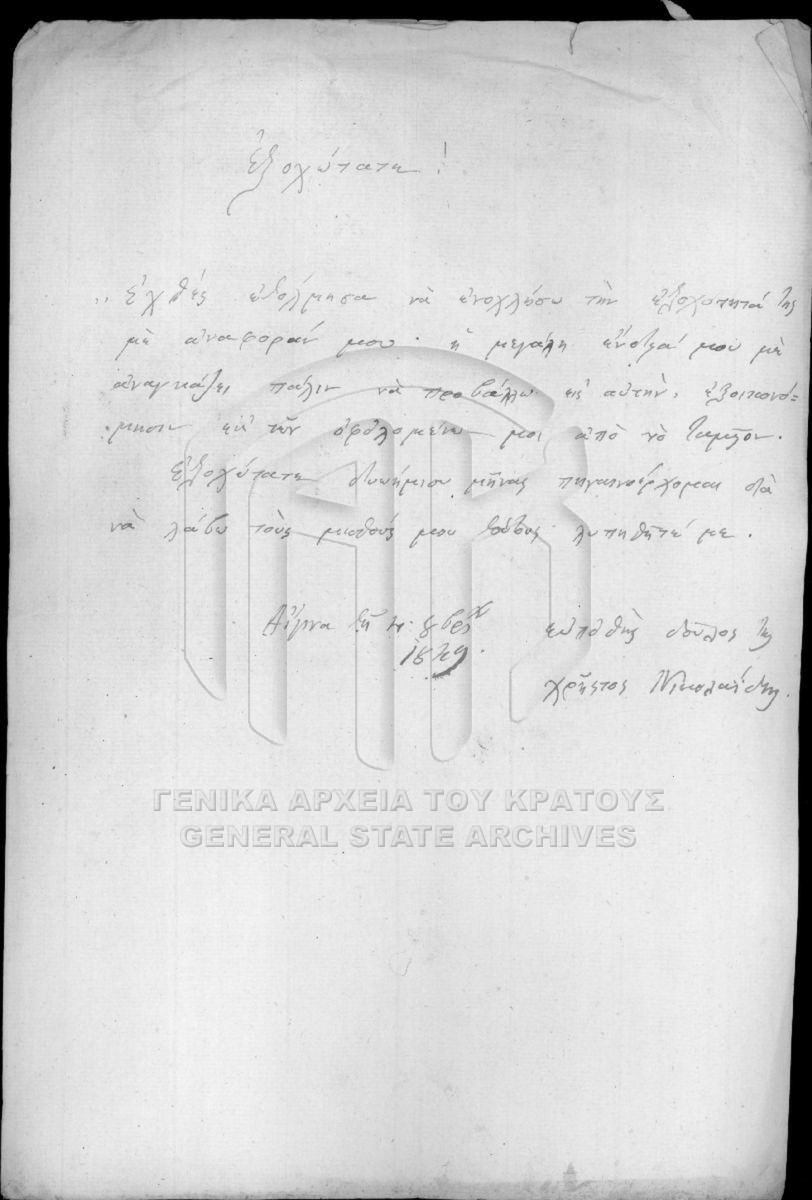 Ἐξοχώτατε!
Ἐχθὲς ἐτόλμησα νὰ ἐνοχλήσω τὴν ἐξοχότητά της
μὲ ἀναφοράν μου· ἡ μεγάλη ἔνδειά μου μὲ
ἀναγκάζει πάλιν νὰ προβάλλω εἰς αὐτὴν, ἐξοικονό-
μησιν ἐκ τῶν ὀφειλομένων μοι ἀπὸ τὸ ταμεῖον.
Ἐξοχώτατε μῆνας πηγαινοέρχομαι διὰ
νὰ λάβω τοὺς μισθούς μου τούτους λυπηθῆτέ με.
Αἴγινα τῇ 8βρίου
1829.
εὐπειθὴς δοῦλος της
χρῆστος Νικολαΐδης.
ΓΕΝΙΚΑ ΑΡΧΕΙΑ ΤΟΥ ΚΡΑΤΟΥΣ
GENERAL STATE ARCHIVES